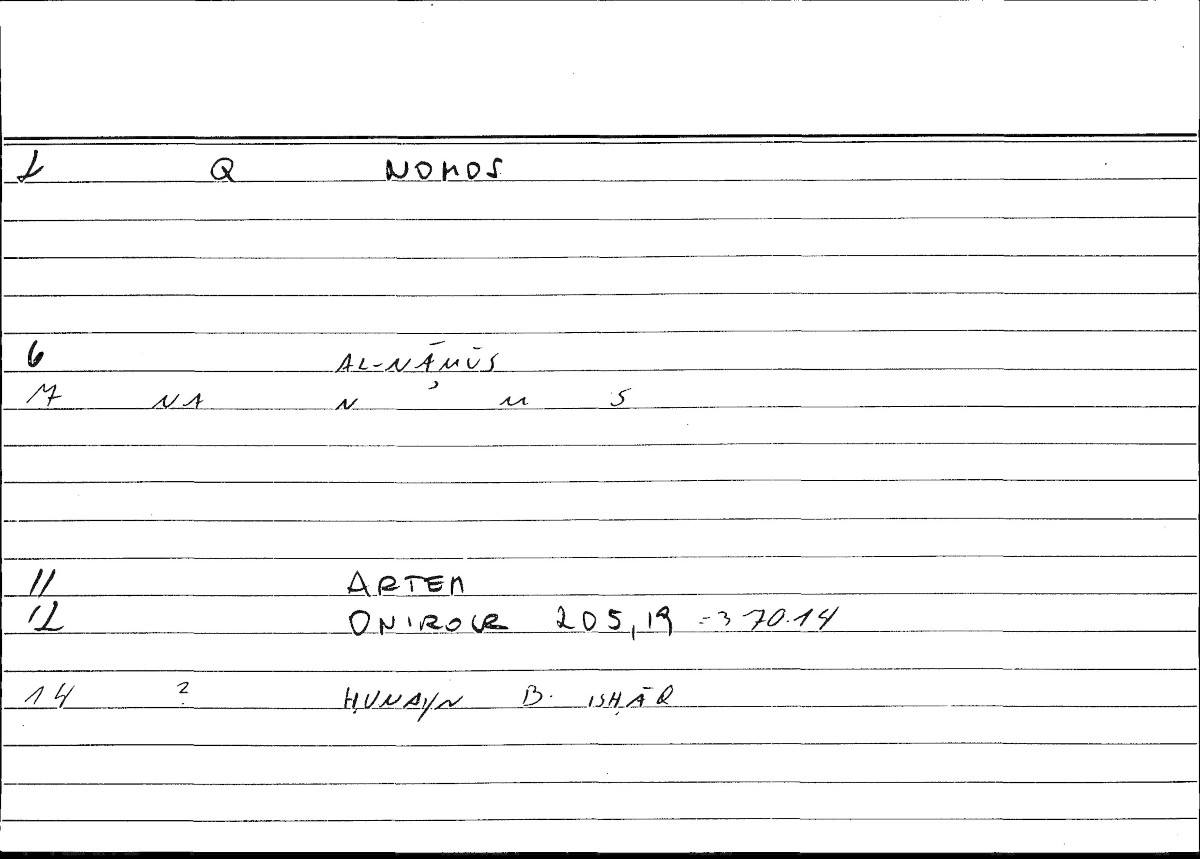 2 Q NOMOS
6 AL-NĀMŪS
7 NA N ʾ M S
11 ARTEM
12 ONIROCR 205,19 = 370.14
14 ? ḤUNAYN B. ISḤĀQ